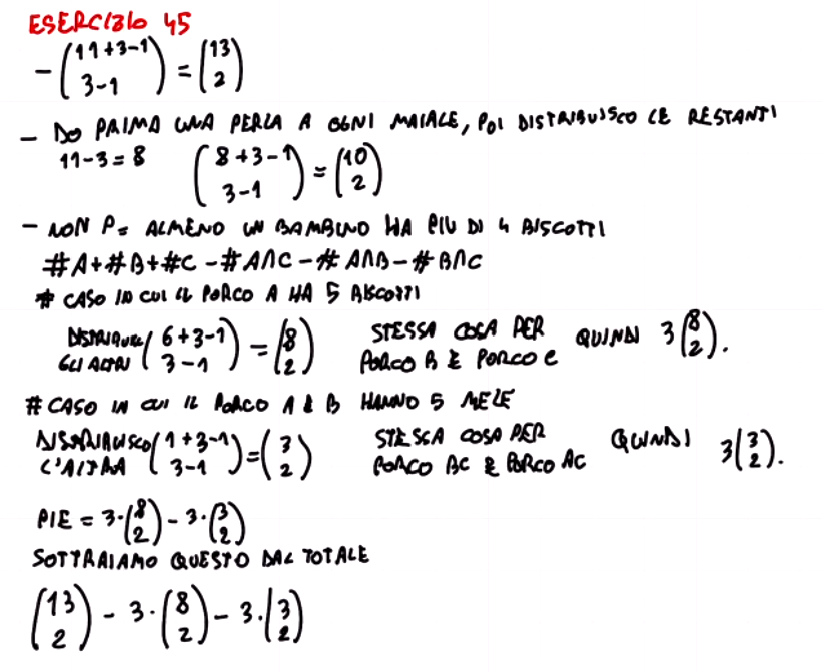 ESERCIZIO 45
- (11+3-1 3-1) = (13 2)
- DO PRIMA UNA PERLA A OGNI MAIALE, POI DISTRIBUISCO LE RESTANTI
11-3=8 (8+3-1 3-1) = (10 2)
- NON P= ALMENO UN BAMBINO HA PIU DI 4 BISCOTTI
#A+#B+#C-#A∩C-#A∩B-#B∩C
# CASO IN CUI IL PORCO A HA 5 BISCOTTI
DISTRIBUISCI GLI ALTRI (6+3-1 3-1) = (8 2) STESSA COSA PER PORCO B E PORCO C QUINDI 3(8 2).
# CASO IN CUI IL PORCO A E B HANNO 5 MELE
DISTRIBUISCO L'ALTRA (1+3-1 3-1) = (3 2) STESSA COSA PER PORCO BC E PORCO AC QUINDI 3(3 2).
PIE = 3·(8 2) - 3·(3 2)
SOTTRAIAMO QUESTO DAL TOTALE
(13 2) - 3·(8 2) - 3·(3 2)